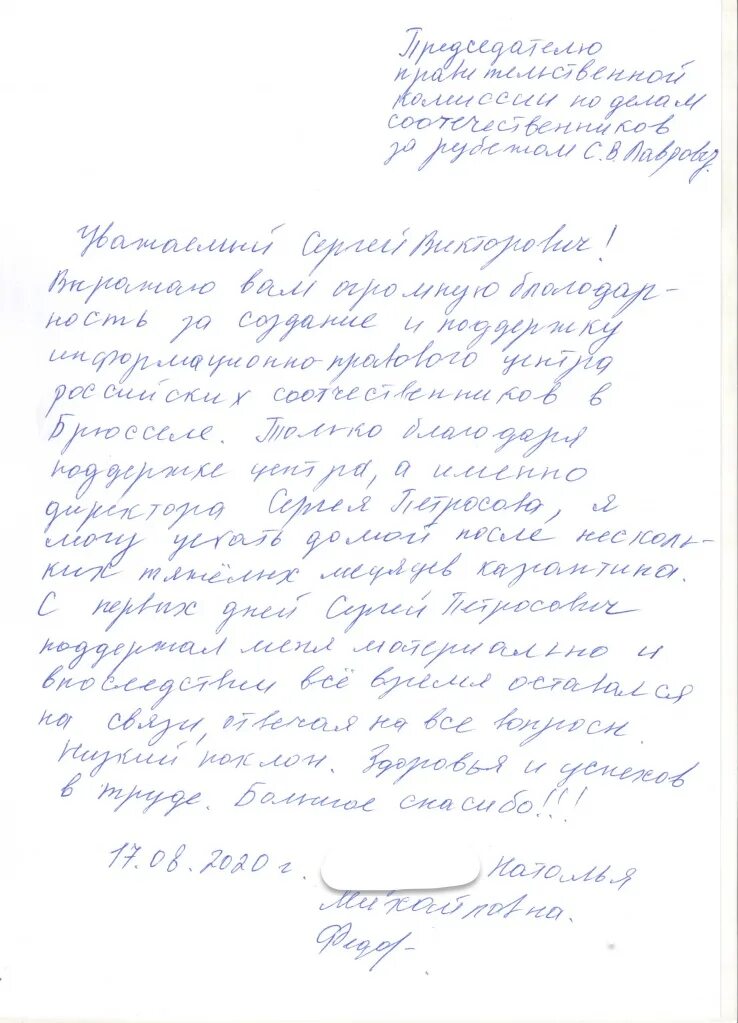 Председателю
правительственной
комиссии по делам
соотечественников
за рубежом С.В Лаврову.
Уважаемый Сергей Викторович!
Выражаю вам огромную благодар-
ность за создание и поддержку
информационно-правового центра
российских соотчественников в
Брюсселе. Только благодаря
поддержке центра, а именно
директора Сергея Петросова, я
могу уехать домой после несколь-
ких тяжёлых месяцев карантина.
С первых дней Сергей Петросович
поддержал меня материально и
впоследствии всё время оставался
на связи, отвечая на все вопросы.
Низкий поклон. Здоровья и успехов
в труде. Большое спасибо!!!
17.08.2020 г. Наталья
Михайловна.
Федор-